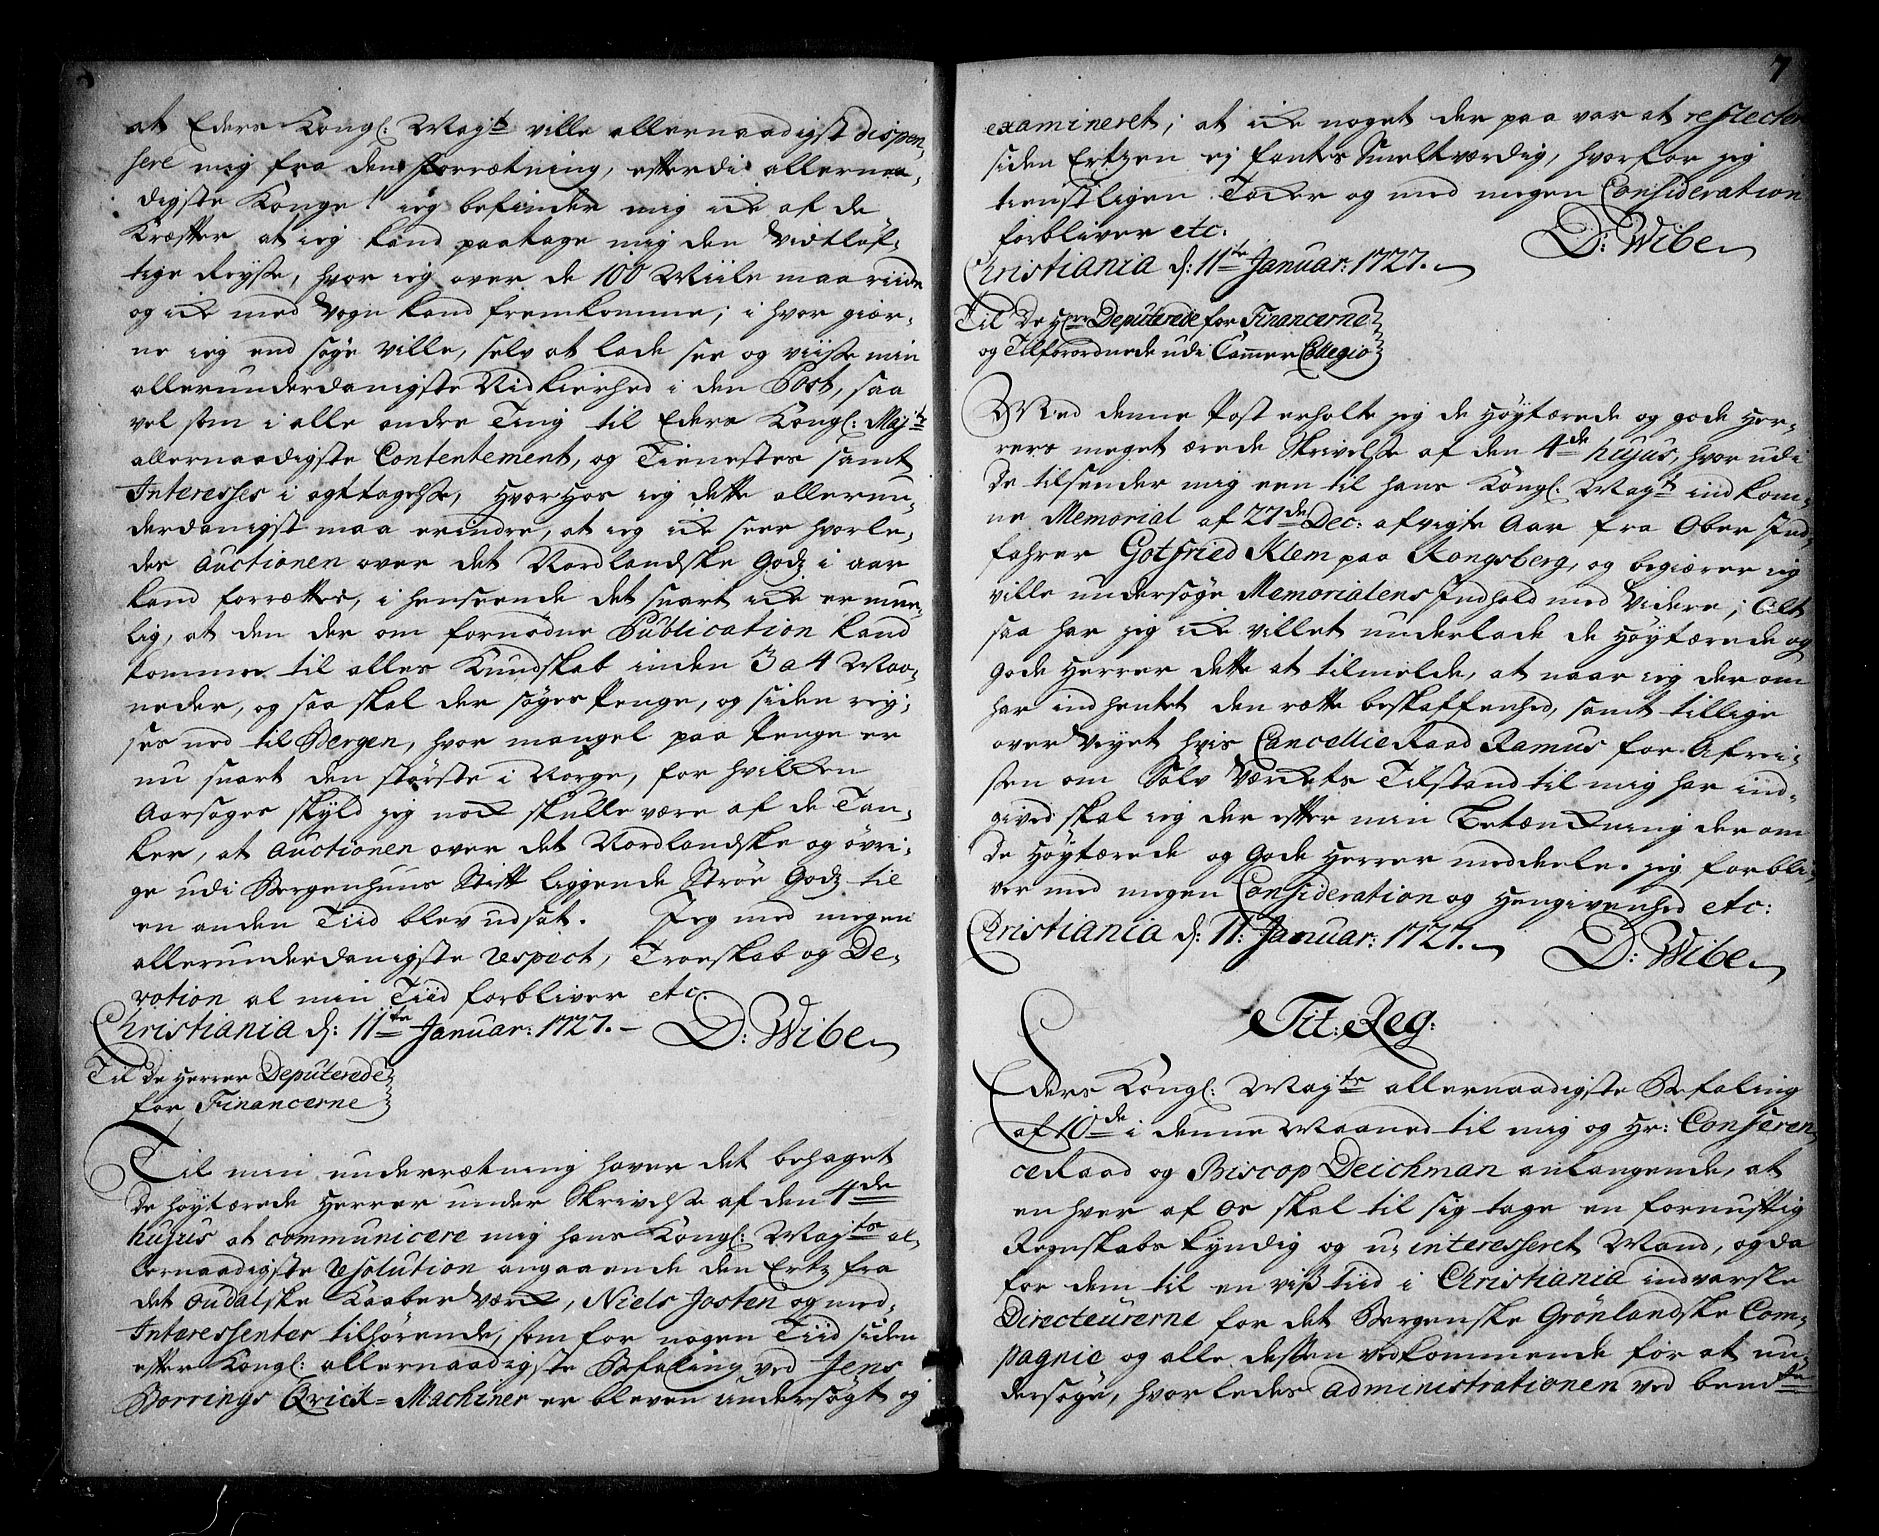 at Eders Kongl: Mayts ville allernaadigst dispen-
sere mig fra den forrætning, efterdi allernaa-
digste Konge! ieg befinder mig icke af de
Kræfter at ieg kand paatage mig den Vidtløf-
tige Reyse, hvor ieg over de 100 Miile maa riide
og icke med Vogn kand fremkomme; i hvor giær-
ne ieg end søge ville, selv at lade see og viisse min
allerunderdanigste Nidkierhed i den Post, saa
vel som i alle andre Ting til Eders Kongl: Mayts
allernaadigste Contentement, og Tienestes samt
Interesses i agttagelse, hvorhos ieg dette allerun-
derdanigst maa erindre, at ieg icke seer hvorle-
des Auctionen over det Nordlandske Godz i aar
kand forrættes, i henseende det snart icke er mue-
lig, at den der om fornødne Publication kand
komme til alles Kundskab inden 3 a 4 Maa-
neder, og saa skal der søges Penge, og siden rey-
ses ned til Bergen, hvor mangel paa Penge er
nu snart den største i Norge, for hvilcken
Aarsages skyld jeg nock skulle være af de Tan-
ker, at Auctionen over det Nordlandske og øvri-
ge udi Bergenhuus Stift liggende Strøe Godz til
en anden Tiid blev udsat. Jeg med megen
allerunderdanigste respect, Troeskab og De-
votion al min Tiid forbliver etc.
Christiania d: 11te Januar: 1727. D: Wibe
Til De Herrer Deputerede
for Financerne
Til min underrætning haver det behaget
De høytærede Herrer under Skrivelse af den 4de
hujus at communicere mig hans Kongl: Mayts al-
lernaadigste Resolution angaaende den Ertz fra
det Oudalske Kaaber Værck, Niels Josten og med-
Interessenter tilhørende, som for nogen Tiid siden
efter Kongl: allernaadigste Befaling ved Jens
Borrings Qvick-Machiner er bleven undersøgt og
7
examineret; at icke noget der paa var at reflectere
siden Ertzen ej fantes Smeltværdig, hvorfor jeg
tienstligen Tacker og med megen Consideration
forbliver etc: D: Wibe
Christiania d: 11te Januar: 1727.
Til De Hrr Deputerede for Financerne
og Tilforordnede udi Cammer Collegio
Med denne Post erholte jeg de Høytærede og gode Her-
rers meget ærede Skrivelse af den 4de hujus, hvor udi
De tilsender mig een til hans Kongl: Mayt indkom-
ne Memorial af 27de Dec: afvigte Aar fra Ober Ind-
fahrer Gotfried Klem paa Kongsberg, og begiærer ieg
ville undersøge Memorialens Indhold med Videre; Alt
saa har jeg icke villet underlade de Høytærede og
gode Herrer dette at tilmelde, at naar ieg der om
har indhentet den rætte beskaffenhed, samt tillige
over Veyet hvis Cancellie Raad Ramus for Afrei-
sen om Sølv Værckets Tilstand til mig har ind-
gived skal ieg der efter min Betænckning der om
De Høytærede og Gode Herrer meddeele. jeg forbli-
ver med megen Consideration og Hengivenhed etc:
Christiania d: 11: Januar: 1727. D: Wibe
Tit: Reg:
Eders Kongl: Mayts allernaadigste Befaling
af 10de i denne Maaned til mig og Hr: Conferen-
ce Raad og Biscop Deichman anlangende, at
en hver af os skal til sig tage en fornuftig
Regnskabs kyndig og u-interesseret Mand, og da
for dem til en viss tiid i Christiania indvarske
Directeurerne for det Bergenske Grønlandske Com-
pagnie og alle dessen vedkommende for at un-
dersøge, hvorledes Administrationen ved bemte